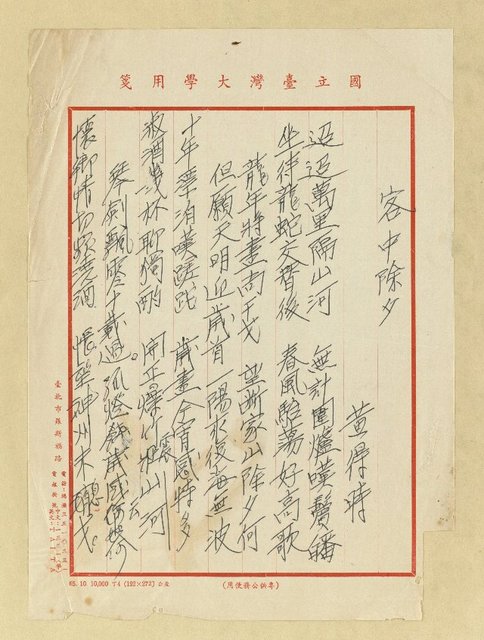 國立臺灣大學用箋
客中除夕
黃得時
迢迢萬里隔山河 無計圍爐嘆鬢皤
坐待龍蛇交替後 春風駘蕩好高歌
龍年將盡尚干戈 望斷家山除夕何
但願天明迎歲首 一陽來復海無波
十年萍泊嘆蹉跎 歲盡今宵感特多
淑酒幾杯聊獨酌 開正爆竹震山河
琴劍飄零十載過 孤燈餞歲感
懷鄉情切頻 酒 悵望神州未息戈
臺北市羅斯福路
65. 10 10,000 T4 (192×272)
(專供公務使用)